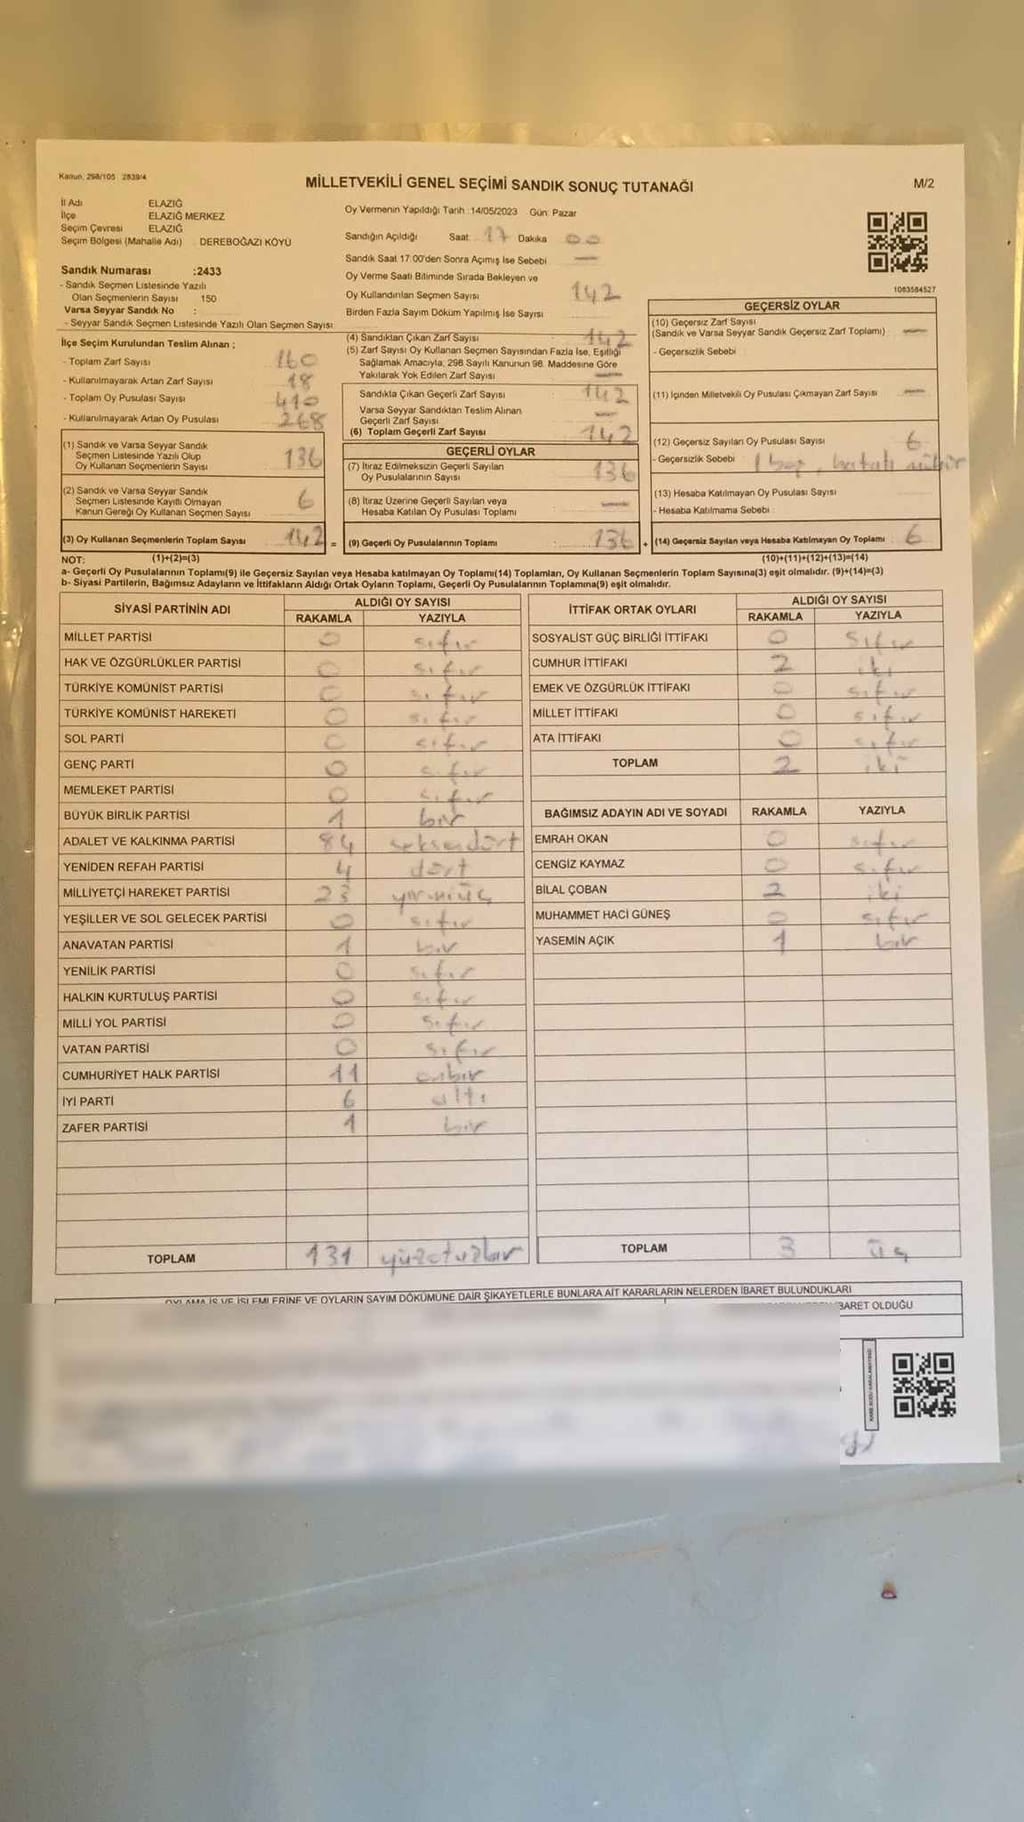 Kanun: 298/105 2839/4
MİLLETVEKİLİ GENEL SEÇİMİ SANDIK SONUÇ TUTANAĞI
M/2
İl Adı ELAZIĞ
İlçe ELAZIĞ MERKEZ
Seçim Çevresi ELAZIĞ
Seçim Bölgesi (Mahalle Adı) DEREBOĞAZI KÖYÜ
Oy Vermenin Yapıldığı Tarih :14/05/2023 Gün: Pazar
Sandığın Açıldığı Saat: 17 Dakika 00
Sandık Saat 17:00'den Sonra Açımış İse Sebebi —
Oy Verme Saati Bitiminde Sırada Bekleyen ve
Oy Kullandırılan Seçmen Sayısı 142
Birden Fazla Sayım Döküm Yapılmış İse Sayısı
1083584527
Sandık Numarası :2433
- Sandık Seçmen Listesinde Yazılı
Olan Seçmenlerin Sayısı 150
Varsa Seyyar Sandık No :
- Seyyar Sandık Seçmen Listesinde Yazılı Olan Seçmen Sayısı:
İlçe Seçim Kurulundan Teslim Alınan ;
- Toplam Zarf Sayısı 160
- Kullanılmayarak Artan Zarf Sayısı 18
- Toplam Oy Pusulası Sayısı 410
- Kullanılmayarak Artan Oy Pusulası 268
(1) Sandık ve Varsa Seyyar Sandık
Seçmen Listesinde Yazılı Olup
Oy Kullanan Seçmenlerin Sayısı 136
(2) Sandık ve Varsa Seyyar Sandık
Seçmen Listesinde Kayıtlı Olmayan
Kanun Gereği Oy Kullanan Seçmen Sayısı 6
(3) Oy Kullanan Seçmenlerin Toplam Sayısı 142 =
(4) Sandıktan Çıkan Zarf Sayısı 142
(5) Zarf Sayısı Oy Kullanan Seçmen Sayısından Fazla İse, Eşitliği
Sağlamak Amacıyla; 298 Sayılı Kanunun 98. Maddesine Göre
Yakılarak Yok Edilen Zarf Sayısı —
Sandıkla Çıkan Geçerli Zarf Sayısı 142
Varsa Seyyar Sandıktan Teslim Alınan
Geçerli Zarf Sayısı —
(6) Toplam Geçerli Zarf Sayısı 142
GEÇERLİ OYLAR
(7) İtiraz Edilmeksizin Geçerli Sayılan
Oy Pusulalarının Sayısı 136
(8) İtiraz Üzerine Geçerli Sayılan veya
Hesaba Katılan Oy Pusulası Toplamı —
(9) Geçerli Oy Pusulalarının Toplamı : 136 +
GEÇERSİZ OYLAR
(10) Geçersiz Zarf Sayısı
(Sandık ve Varsa Seyyar Sandık Geçersiz Zarf Toplamı) —
- Geçersizlik Sebebi
(11) İçinden Milletvekili Oy Pusulası Çıkmayan Zarf Sayısı —
(12) Geçersiz Sayılan Oy Pusulası Sayısı 6
- Geçersizlik Sebebi 1 boş, hatalı mühür
(13) Hesaba Katılmayan Oy Pusulası Sayısı
- Hesaba Katılmama Sebebi
(14) Geçersiz Sayılan veya Hesaba Katılmayan Oy Toplamı 6
NOT: (1)+(2)=(3) (10)+(11)+(12)+(13)=(14)
a- Geçerli Oy Pusulalarının Toplamı(9) ile Geçersiz Sayılan veya Hesaba katılmayan Oy Toplamı(14) Toplamları, Oy Kullanan Seçmenlerin Toplam Sayısına(3) eşit olmalıdır. (9)+(14)=(3)
b- Siyasi Partilerin, Bağımsız Adayların ve İttifakların Aldığı Ortak Oyların Toplamı, Geçerli Oy Pusulalarının Toplamına(9) eşit olmalıdır.
SİYASİ PARTİNİN ADI ALDIĞI OY SAYISI
RAKAMLA YAZIYLA
MİLLET PARTİSİ 0 sıfır
HAK VE ÖZGÜRLÜKLER PARTİSİ 0 sıfır
TÜRKİYE KOMÜNİST PARTİSİ 0 sıfır
TÜRKİYE KOMÜNİST HAREKETİ 0 sıfır
SOL PARTİ 0 sıfır
GENÇ PARTİ 0 sıfır
MEMLEKET PARTİSİ 0 sıfır
BÜYÜK BİRLİK PARTİSİ 1 bir
ADALET VE KALKINMA PARTİSİ 84 seksendört
YENİDEN REFAH PARTİSİ 4 dört
MİLLİYETÇİ HAREKET PARTİSİ 23 yirmiüç
YEŞİLLER VE SOL GELECEK PARTİSİ 0 sıfır
ANAVATAN PARTİSİ 1 bir
YENİLİK PARTİSİ 0 sıfır
HALKIN KURTULUŞ PARTİSİ 0 sıfır
MİLLİ YOL PARTİSİ 0 sıfır
VATAN PARTİSİ 0 sıfır
CUMHURİYET HALK PARTİSİ 11 onbir
İYİ PARTİ 6 altı
ZAFER PARTİSİ 1 bir
TOPLAM 131 yüzotuzbir
İTTİFAK ORTAK OYLARI ALDIĞI OY SAYISI
RAKAMLA YAZIYLA
SOSYALİST GÜÇ BİRLİĞİ İTTİFAKI 0 sıfır
CUMHUR İTTİFAKI 2 iki
EMEK VE ÖZGÜRLÜK İTTİFAKI 0 sıfır
MİLLET İTTİFAKI 0 sıfır
ATA İTTİFAKI 0 sıfır
TOPLAM 2 iki
BAĞIMSIZ ADAYIN ADI VE SOYADI RAKAMLA YAZIYLA
EMRAH OKAN 0 sıfır
CENGİZ KAYMAZ 0 sıfır
BİLAL ÇOBAN 2 iki
MUHAMMET HACİ GÜNEŞ 0 sıfır
YASEMİN AÇIK 1 bir
TOPLAM 3 üç
OYLAMA İŞ VE İŞLEMLERİNE VE OYLARIN SAYIM DÖKÜMÜNE DAİR ŞİKAYETLERLE BUNLARA AİT KARARLARIN NELERDEN İBARET BULUNDUKLARI
BARET OLDUĞU